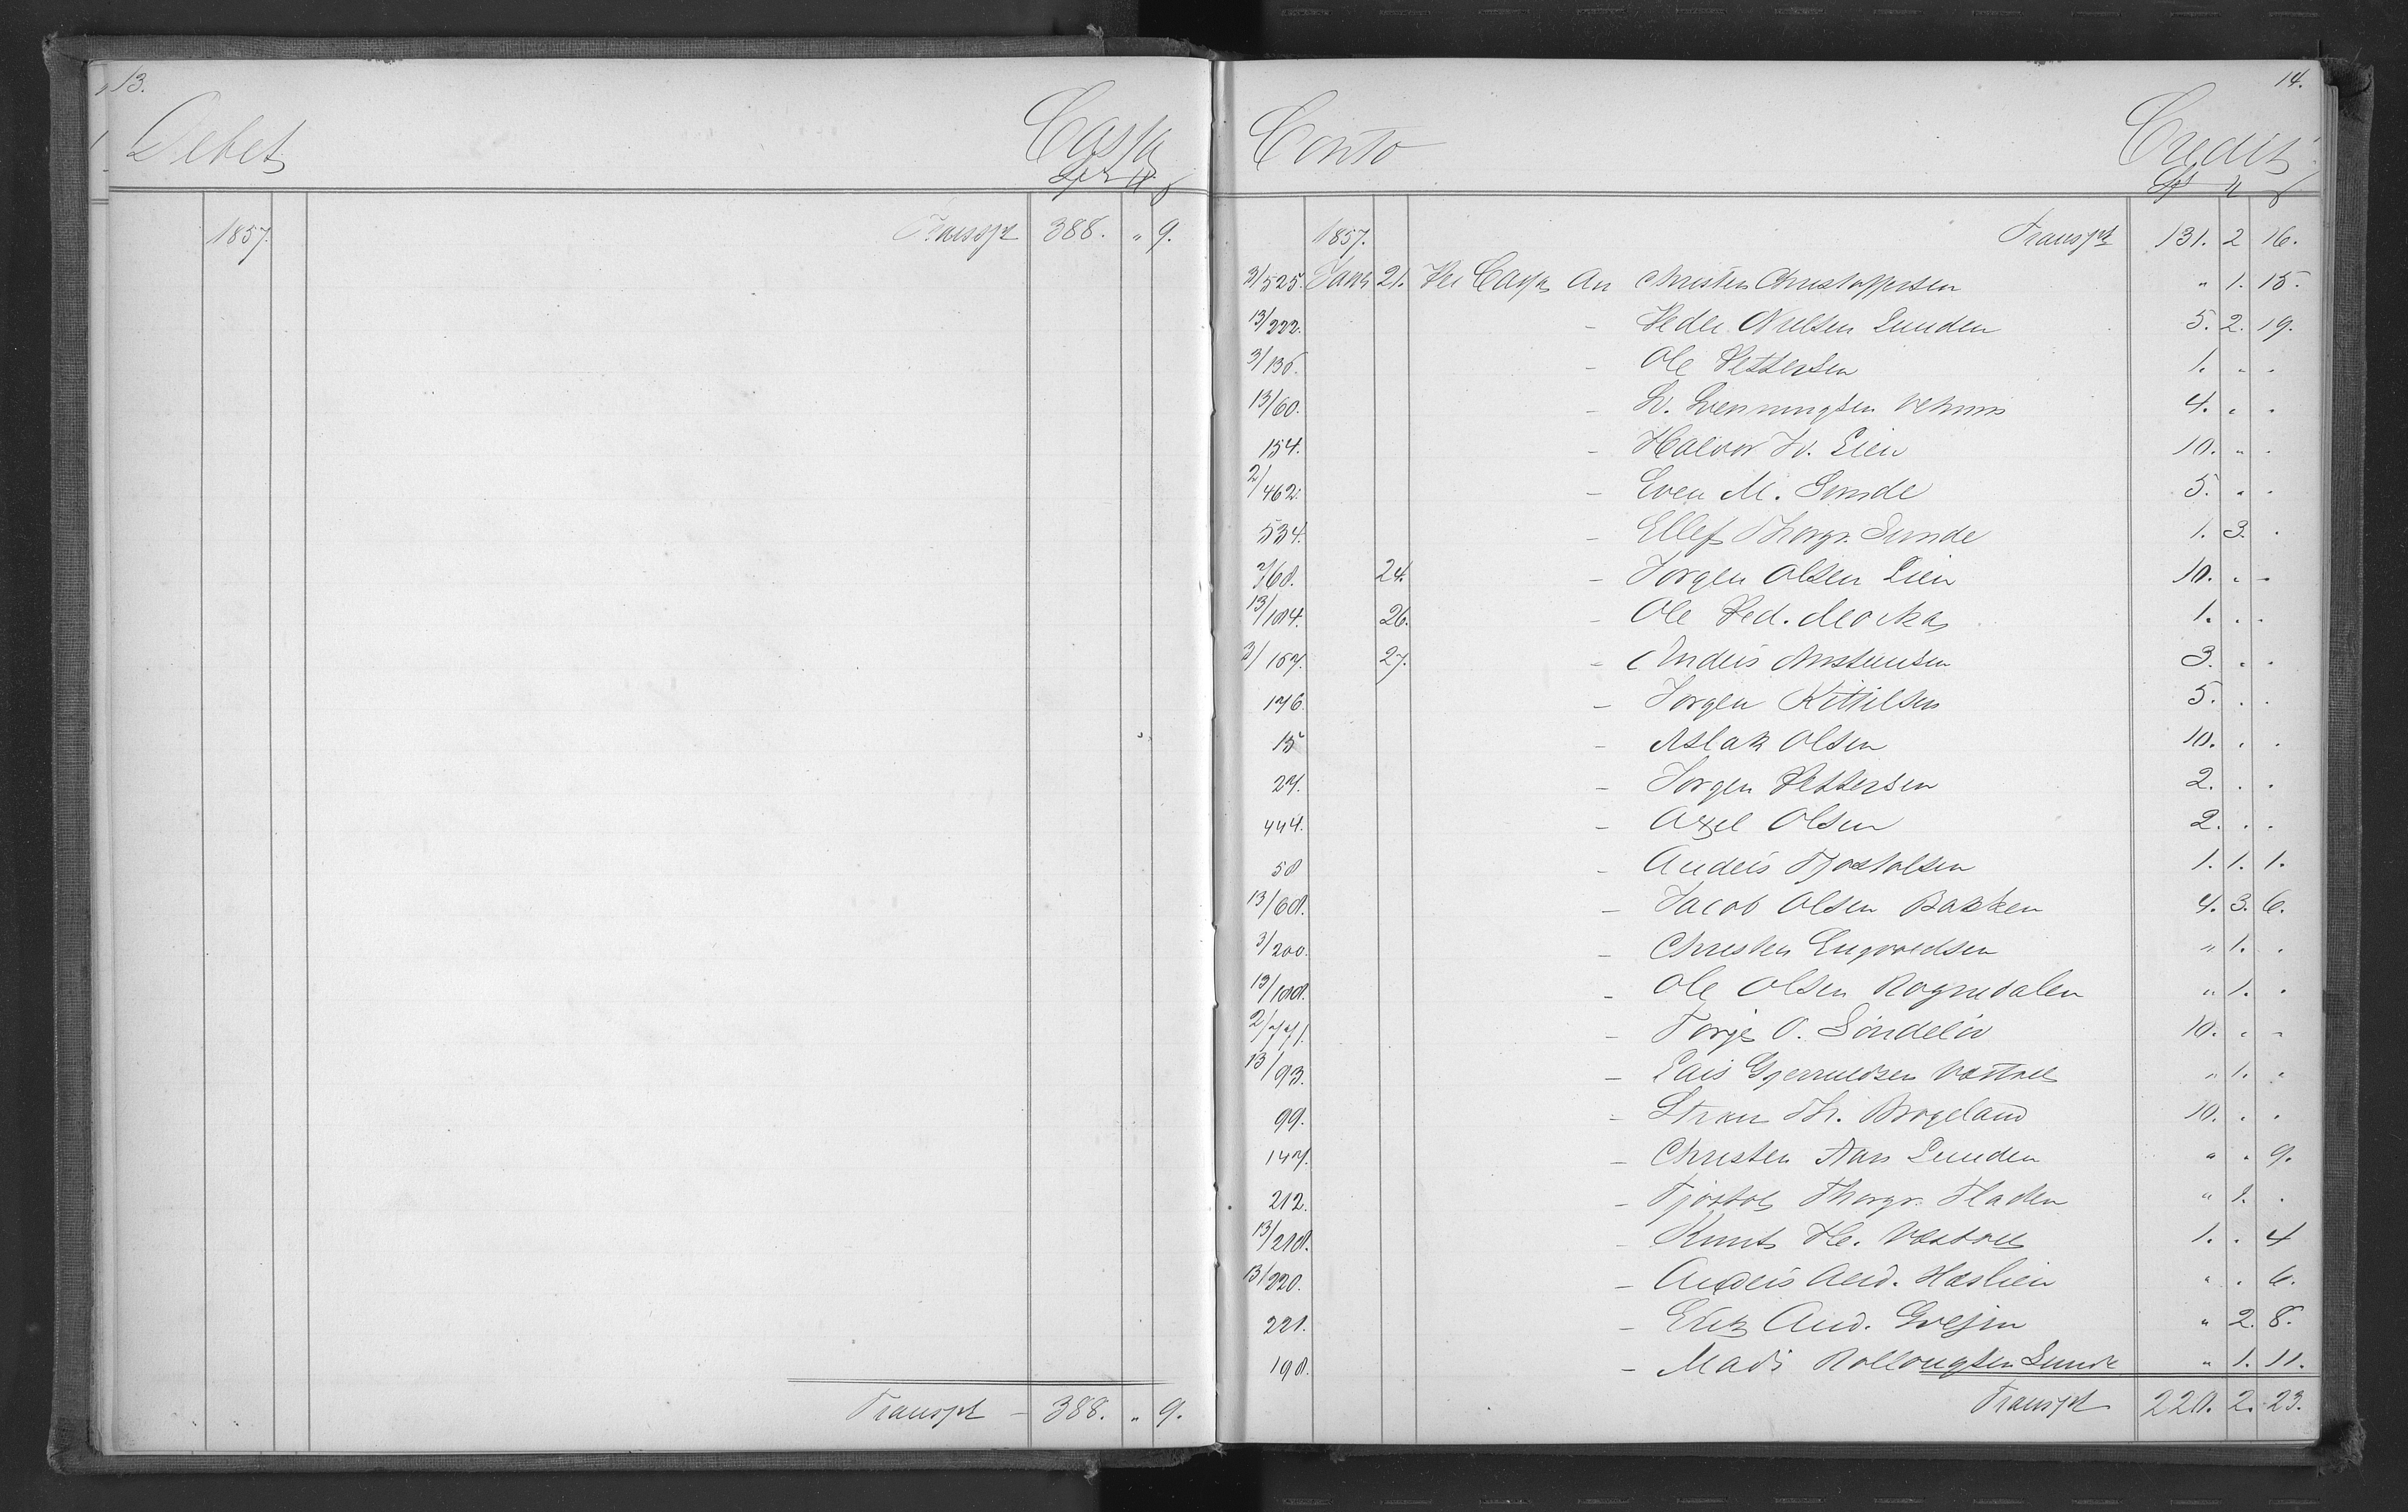 13.
Debet Cassa
Spd
1857. Transpt 388. " 9.
Transpt - 388. " 9.
14.
Conto Credit
1857. Transpt 131. 2 16.
3/525. Janr 21. Per Cassa An Christen Christophersen " 1. 15.
13/222. - Peder Nielsen Lunden 5. 2. 19.
3/138. - Ole Pettersen 1. " "
13/60. - L. Svenningsen 4. " "
154. - Halvor Lien 10. " "
2/462. - Even M. Sunde 5. " "
534. - Ellef Thorgr. Sunde 1. 3. "
2/68. 24. - Jørgen Olsen Lien 10. " "
13/184. 26. - Ole Ped. 1. . .
3/157. 27. - Anders Anstensen 3. " "
176. - Jørgen Kittilsen 5. . .
15 - Aslak Olsen 10. . .
27. - Jørgen Pettersen 2. . .
444. - Axel Olsen 2. . .
58 - Anders Tjostolsen 1. 1. 1.
13/68. - Jacob Olsen Bakken 4. 3. 6.
3/200. - Christen Engvoldsen " 1. .
13/188. - Ole Olsen Rognedalen " 1. .
2/771. - Torje O. Søndeløv 10. " "
13/93. - Lars Gjeruldsen " 1. "
99. - Th. 10. . .
147. - Christen Aars Lunden " " 9.
212. - Tjøstol Thorgr. " 1. .
13/218. - Knut He. 1. . 4
13/220. - Anders And. Haslien " . 6.
221. - Erik And. " 2. 8.
198. - Mads Rollougsen Sunde " 1. 11.
Transpt 220. 2. 23.